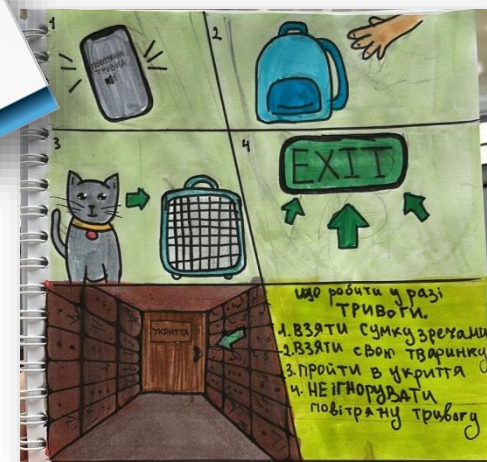 1
ПОВІТРЯНА
ТРИВОГА
2
3
4
EXIT
УКРИТТЯ
що робити у разі
ТРИВОГИ.
1. ВЗЯТИ СУМКУ З РЕЧАМИ
2. ВЗЯТИ СВОЮ ТВАРИНКУ
3. ПРОЙТИ В УКРИТТЯ
4. НЕ ІГНОРУВАТИ
повітряну тривогу